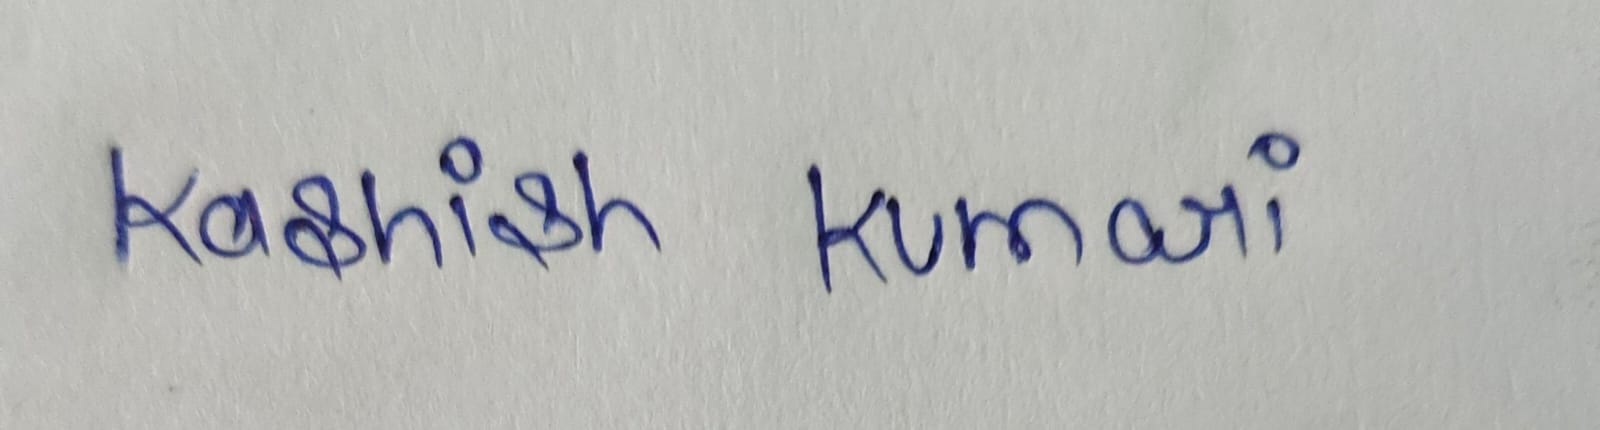 Kashish Kumari